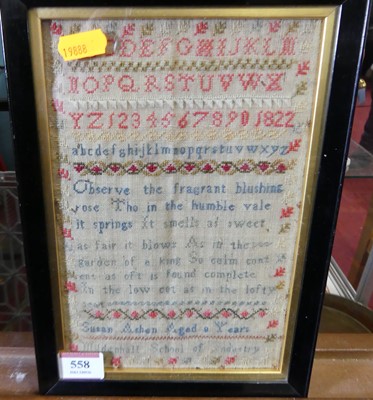 19888
DEFGHIJKLM
NOPQRSTUVWX
YZ1234567890 1822
abcdefghijklmnopqrstuvwxyz
Observe the fragrant blushing
rose Tho in the humble vale
it springs It smells as sweet
as fair it blows As in the
garden of a king So calm cont
ent as oft is found complete
In the low cot as in the lofty
Susan Ashen Aged 9 Years
School of Industry
558